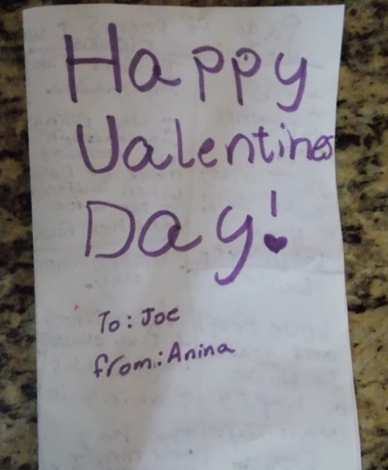 Happy
Valentines
Day!
To: Joe
from: Anina